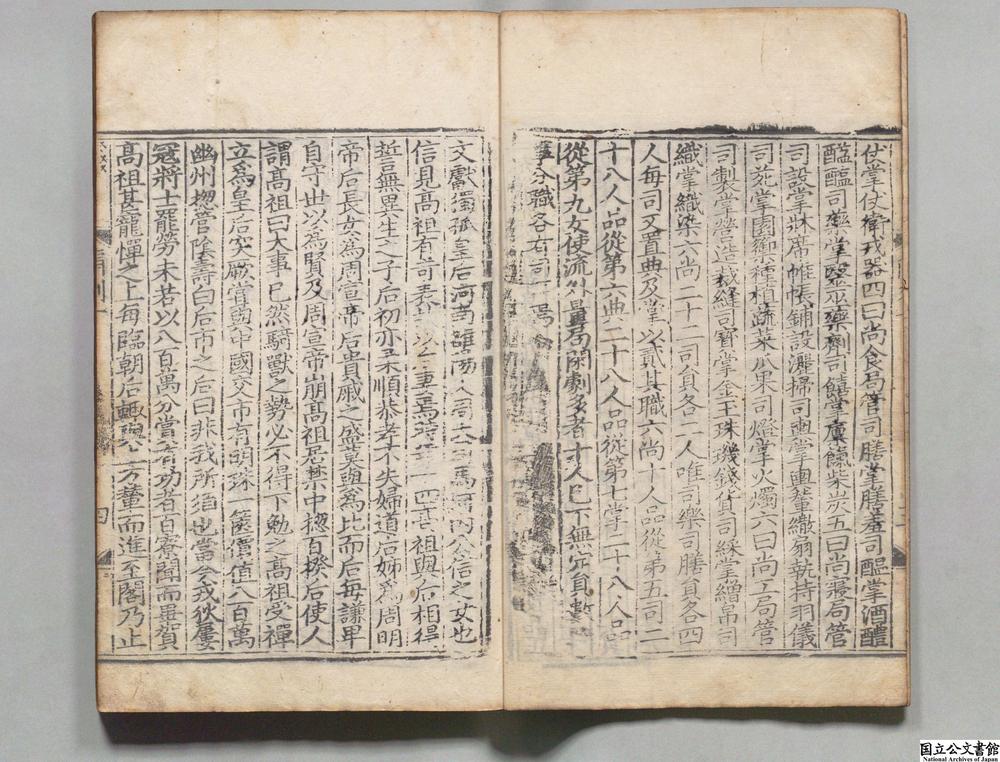 仗掌仗衛戎器四曰尚食局管司膳掌膳羞司醞掌酒醴
醯醢司藥掌醫巫藥劑司饎掌廩餼柴炭五曰尚寢局管
司設掌牀席帷帳鋪設灑掃司輿掌輿輦繖扇執持羽儀
司苑掌園籞種植蔬菜瓜果司燈掌火燭六曰尚工局管
司製掌營造裁縫司寶掌金玉珠璣錢貨司綵掌繒帛司
織掌織染六尚二十二司員各二人唯司樂司膳員各四
人每司又置典及掌以貳其職六尚十人品從第五司二
十八人品從第六典二十八人品從第七掌二十八人品
從第九女使流外量局閑劇多者十人已下無定員數
事分職各有司焉
文獻獨孤皇后河南雒陽人周大司馬河內公信之女也
信見高祖有奇表故以后妻焉時年十四高祖與后相得
誓言無異生之子后初亦柔順恭孝不失婦道后姊爲周明
帝后長女爲周宣帝后貴戚之盛莫與爲比而后每謙卑
自守世以爲賢及周宣帝崩高祖居禁中揔百揆后使人
謂高祖曰大事已然騎獸之勢必不得下勉之高祖受禪
立爲皇后突厥嘗與中國交市有明珠一篋價值八百萬
幽州揔管陰壽白后市之后曰非我所須也當今戎狄屢
寇將士罷勞未若以八百萬分賞有功者百寮聞而畢賀
高祖甚寵憚之上每臨朝后輙與上方輦而進至閣乃止
四
国立公文書館
National Archives of Japan